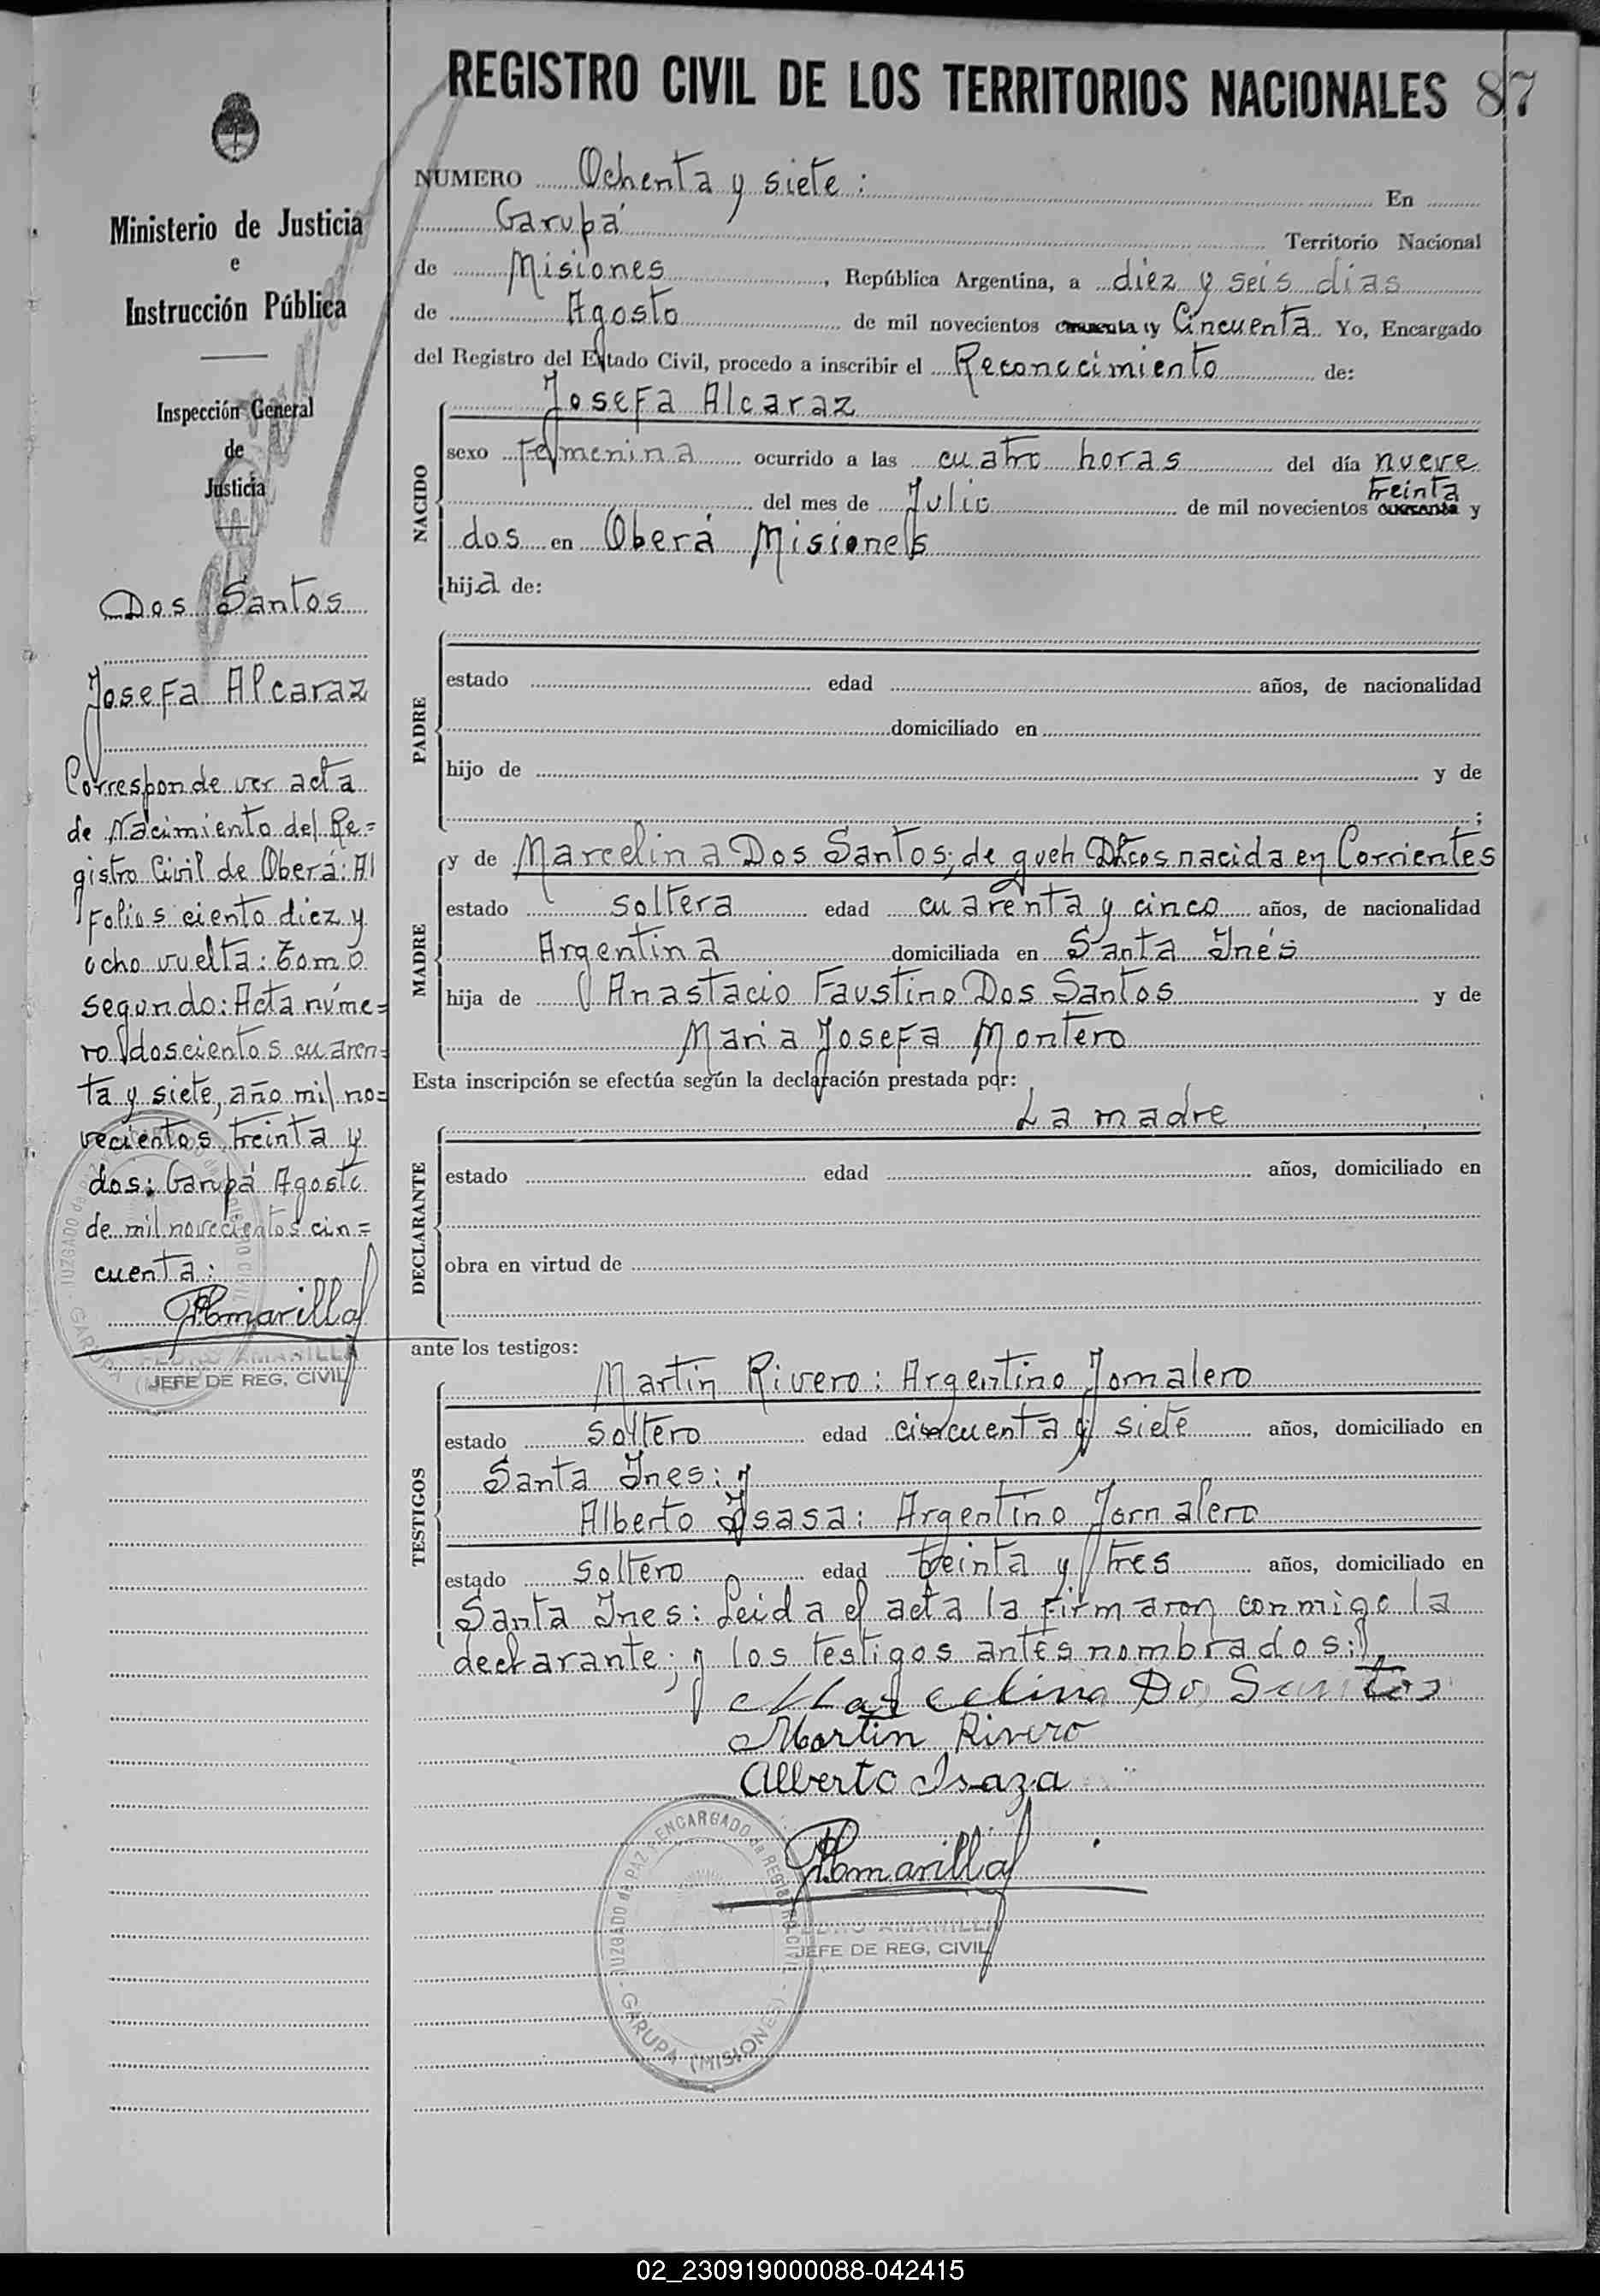 REGISTRO CIVIL DE LOS TERRITORIOS NACIONALES 87
Ministerio de Justicia
e
Instrucción Pública
Inspección General
de
Justicia
Dos Santos
Josefa Alcaraz
Corresponde ver acta
de Nacimiento del Re=
gistro Civil de Oberá: Al
Folios ciento diez y
ocho vuelta: Tomo
segundo: Acta núme=
ro doscientos cuaren=
ta y siete, año mil no=
vecientos treinta y
dos: Garupá Agosto
de mil novecientos cin=
cuenta:
PAmarilla
PEDRO AMARILLA
JEFE DE REG. CIVIL
NUMERO Ochenta y siete: En
Garupá Territorio Nacional
de Misiones, República Argentina, a diez y seis dias
de Agosto de mil novecientos cuarenta y Cincuenta. Yo, Encargado
del Registro del Estado Civil, procedo a inscribir el Reconocimiento de:
Josefa Alcaraz
NACIDO
sexo Femenina ocurrido a las cuatro horas del día nueve
treinta
del mes de Julio de mil novecientos cuarenta y
dos en Oberá Misiones
hija de:
PADRE
estado edad años, de nacionalidad
domiciliado en
hijo de y de
;
MADRE
y de Marcelina Dos Santos; de nacida en Corrientes
estado soltera edad cuarenta y cinco años, de nacionalidad
Argentina domiciliada en Santa Inés
hija de Anastacio Faustino Dos Santos y de
Maria Josefa Montero
Esta inscripción se efectúa según la declaración prestada por:
La madre
DECLARANTE
estado edad años, domiciliado en
obra en virtud de
ante los testigos:
TESTIGOS
Martin Rivero: Argentino Jornalero
estado soltero edad cincuenta y siete años, domiciliado en
Santa Ines: y
Alberto Isasa: Argentino Jornalero
estado soltero edad treinta y tres años, domiciliado en
Santa Ines: Leida el acta la firmaron conmigo la
declarante; y los testigos antes nombrados:
Marcelina Dos Santos
Martin Rivero
Alberto Isaza
PAmarilla
PEDRO AMARILLA
JEFE DE REG. CIVIL
JUZGADO de PAZ y ENCARGADO de REGISTRO CIVIL - GARUPA (MISIONES)
02_230919000088-042415